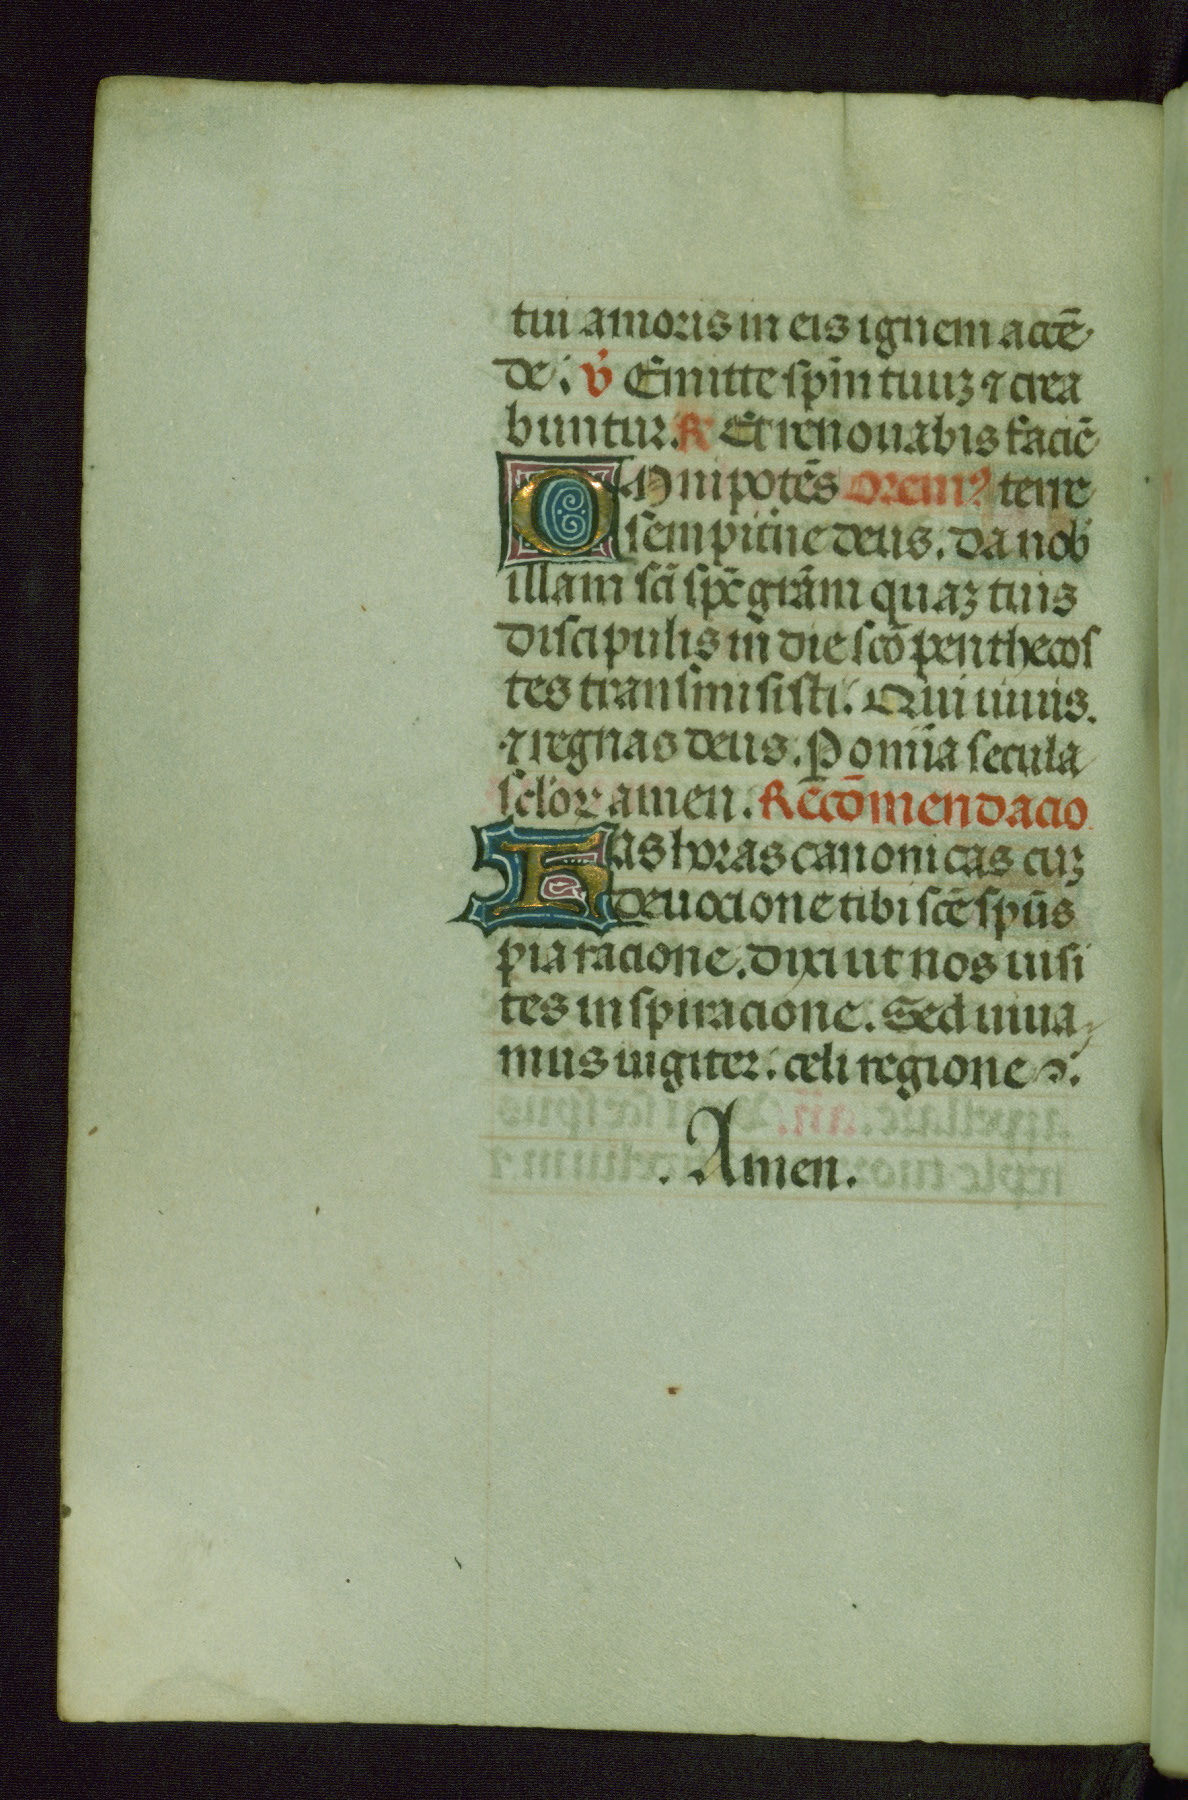 tui amoris in eis ignem accē
de. v̇ Emitte spm̄ tuuꝫ ⁊ crea
buntur. ℟ Et renouabis faciē
Omnipotēs Oremꝰ terre
sempit̄ne deus. da nob̄
illam sc̄i spc̄ gr̄am quaꝫ tuis
discipulis in die sc̄o penthecos
tes transmisisti. Qui uiuis.
⁊ regnas deus. P om̄ia secula
sc̄loꝝ amen. Rec̄cōmendacio
Has horas canonicas cuꝫ
deuocione tibi sc̄e spūs
pia racione. dixi ut nos uisi
tes inspiracione. Sed uiua
mus iugiter. celi regione.
. Amen.